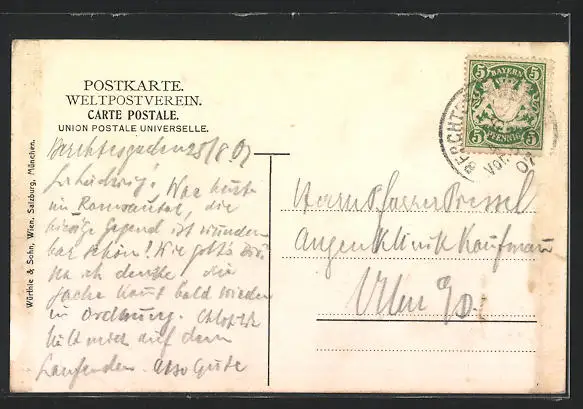 POSTKARTE.
WELTPOSTVEREIN.
CARTE POSTALE.
UNION POSTALE UNIVERSELLE.
Würthle & Sohn, Wien, Salzburg, München.
BAYERN
5 5
5 5
PFENNIG
BERCHT
Vor
07
Berchtesgaden 25/8 07
L. Ludwig! War heute
im Ramsautal, die
hiesige Gegend ist wunder-
bar schön! Wie geht's Dir?
Na ich denke die
Sache kommt bald wieder
in Ordnung.
halt mich auf dem
Laufenden. Also Gute
Herrn Pfarrer Pressel
Augenklinik Kaufmann
Ulm a/D.